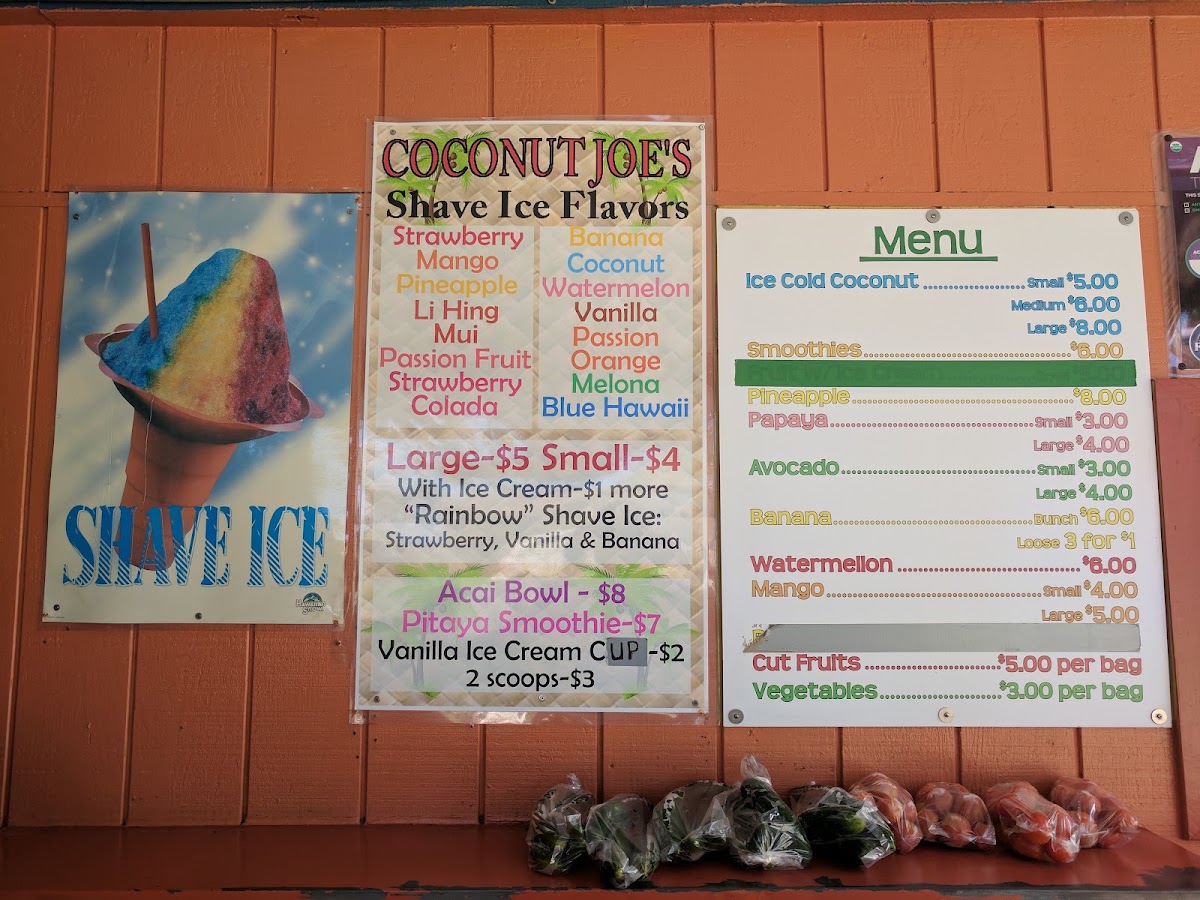 SHAVE ICE
COCONUT JOE'S
Shave Ice Flavors
Strawberry
Mango
Pineapple
Li Hing
Mui
Passion Fruit
Strawberry
Colada
Banana
Coconut
Watermelon
Vanilla
Passion
Orange
Melona
Blue Hawaii
Large-$5 Small-$4
With Ice Cream-$1 more
“Rainbow” Shave Ice:
Strawberry, Vanilla & Banana
Acai Bowl - $8
Pitaya Smoothie-$7
Vanilla Ice Cream CUP -$2
2 scoops-$3
Menu
Ice Cold Coconut ........................ Small $5.00
Medium $6.00
Large $8.00
Smoothies................................................$6.00
Fruit w/ Ice Cream
Pineapple................................................$8.00
Papaya................................................Small $3.00
Large $4.00
Avocado................................................Small $3.00
Large $4.00
Banana................................................Bunch $6.00
Loose 3 for $1
Watermellon ........................................$6.00
Mango................................................Small $4.00
Large $5.00
Cut Fruits ............................$5.00 per bag
Vegetables............................$3.00 per bag